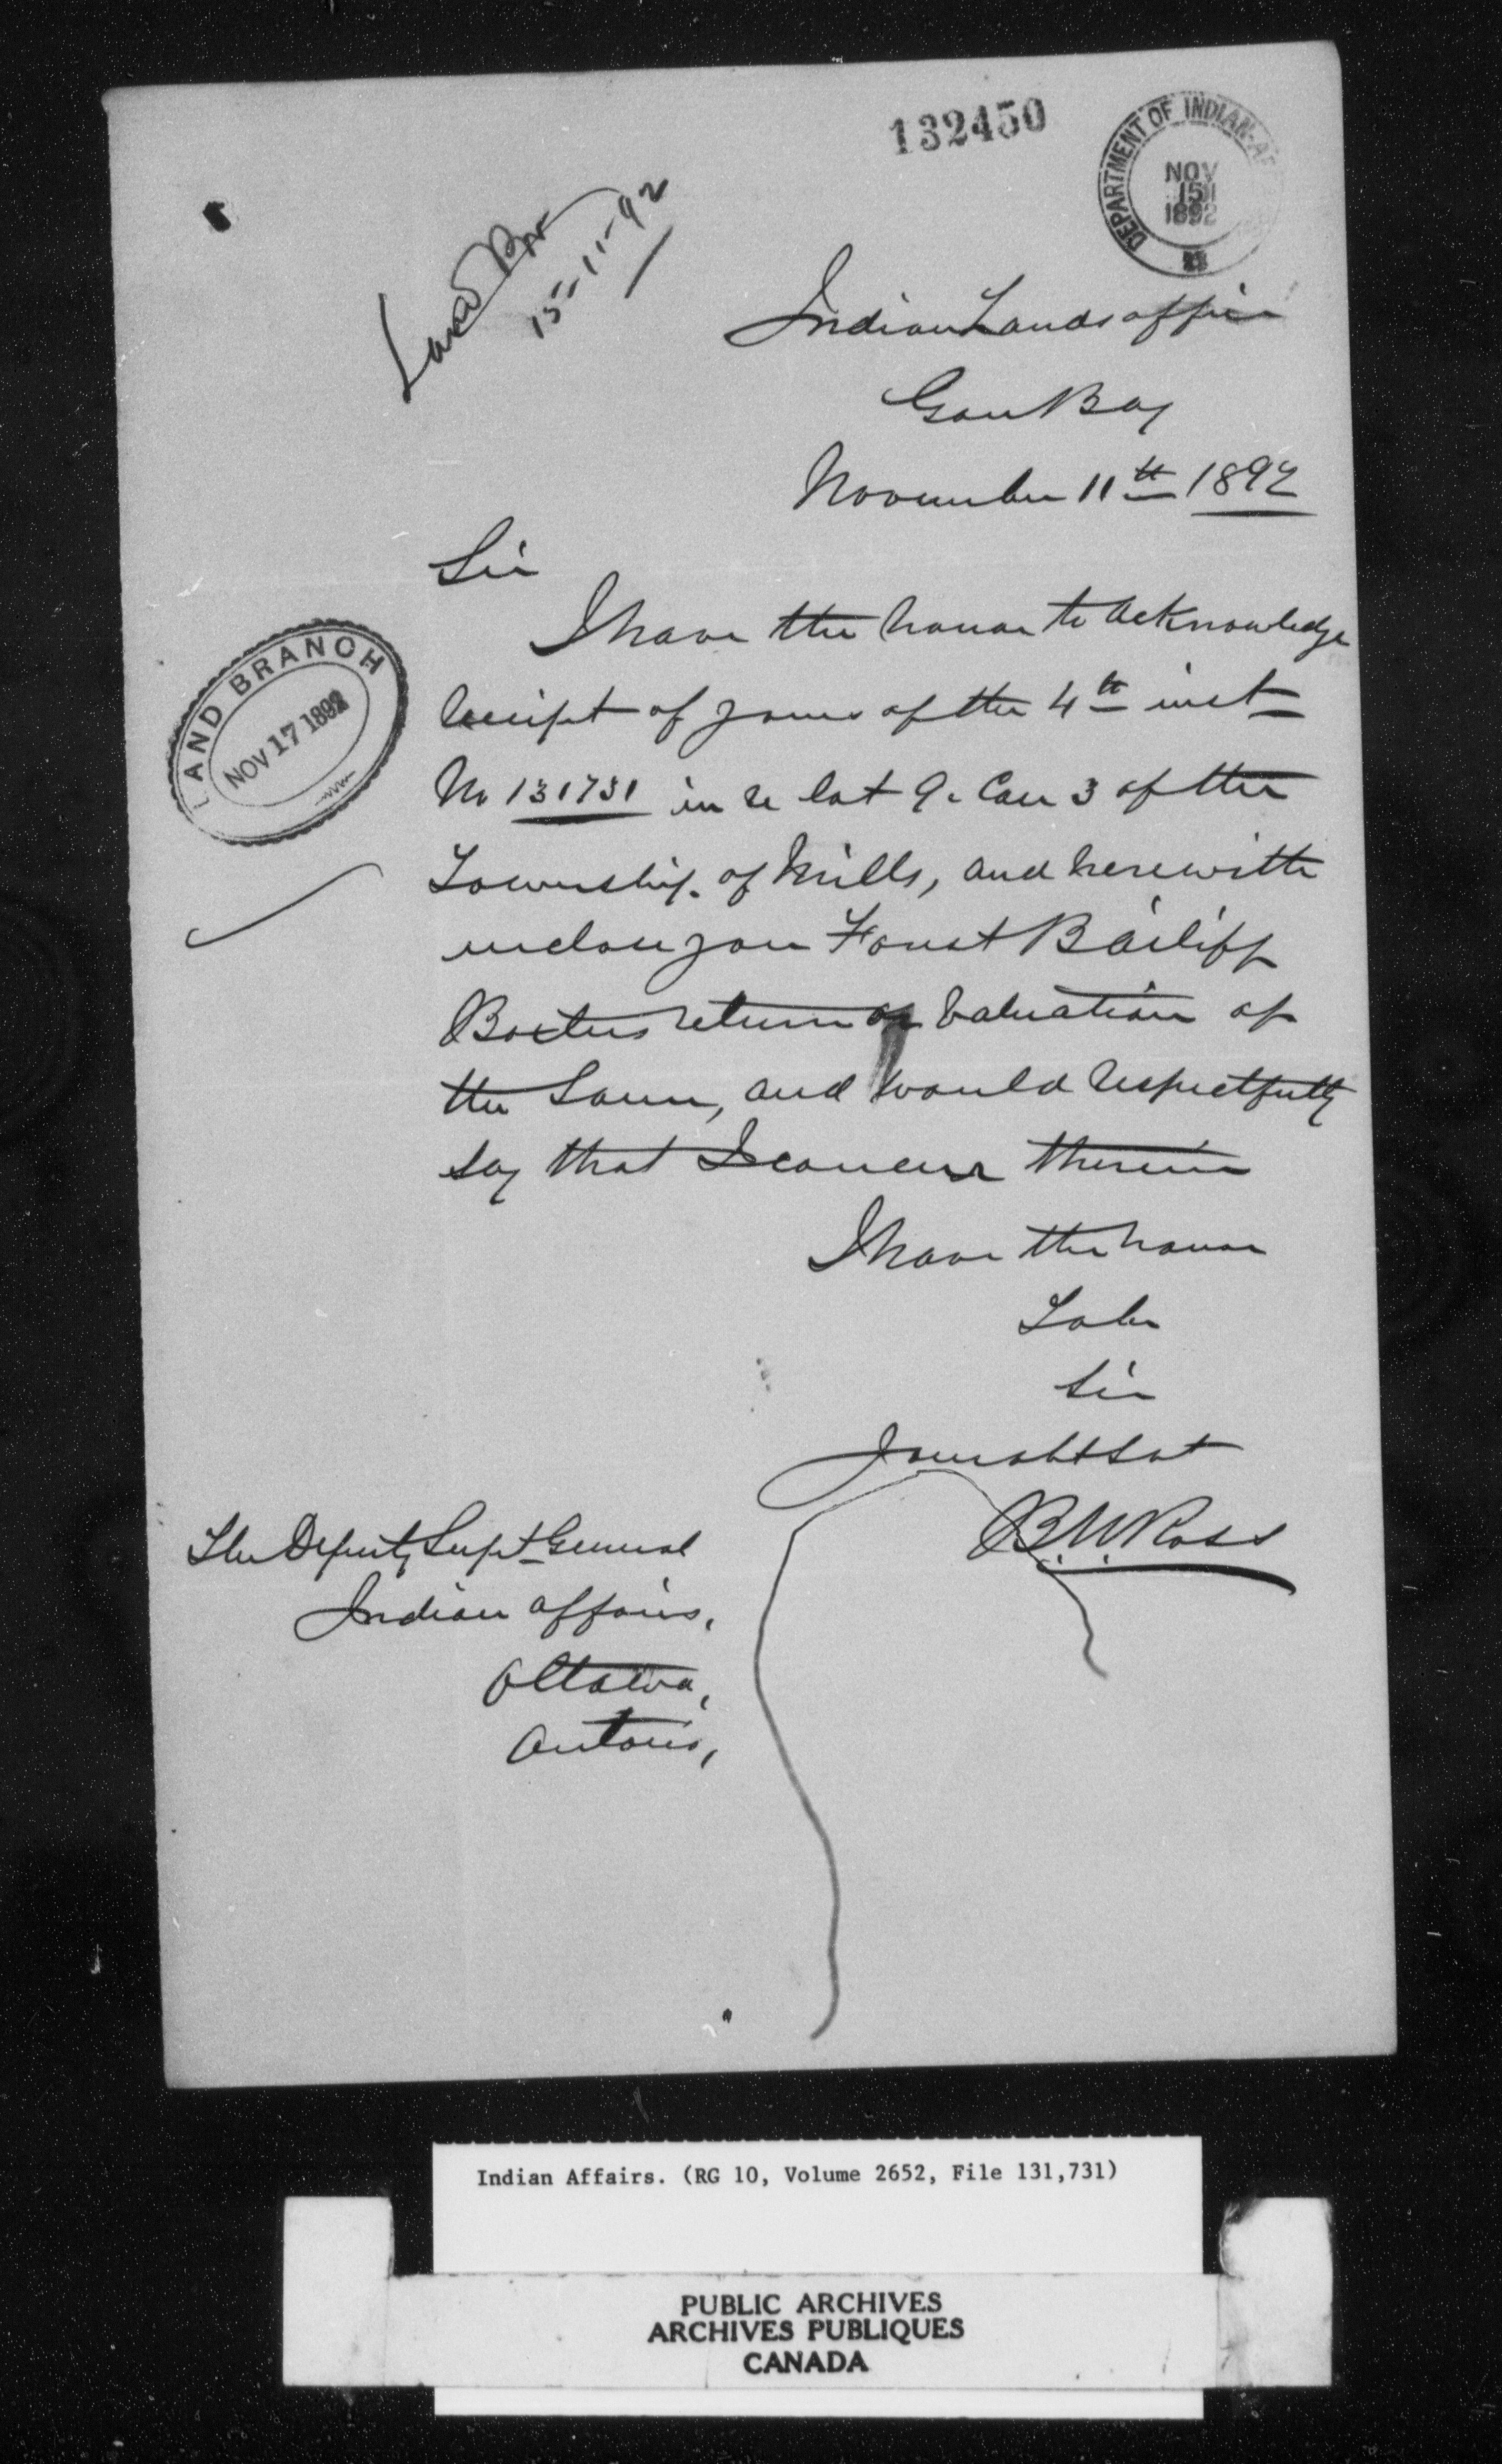 132450
DEPARTMENT OF INDIAN AF
NOV
15
1892
Land Br
15-11-92
Indian Lands office
Gore Bay
November 11th 1892
Sir
I have the honor to acknowledge
receipt of yours of the 4th inst
No 131731 in re lot 9. Con 3 of the
Township. of Mills, and herewith
inclose you Forest Bailiff
return of valuation of
the same, and would respectfully
say that I concur therein
I have the honor
To be
Sir
Your obt Svt
B.W. Ross
LAND BRANCH
NOV 17 1892
The Deputy Supt General
Indian affairs,
Ottawa,
Ontario,
Indian Affairs. (RG 10, Volume 2652, File 131,731)
PUBLIC ARCHIVES
ARCHIVES PUBLIQUES
CANADA